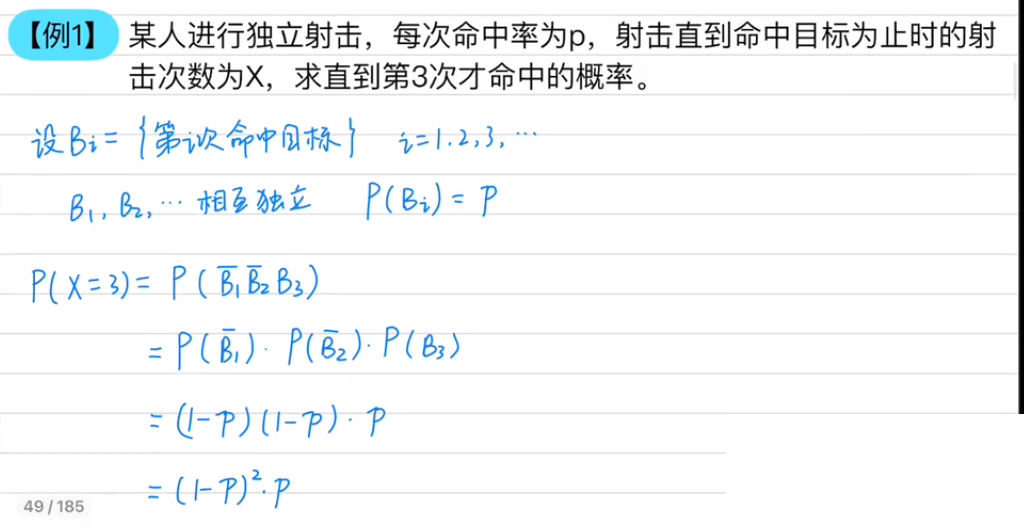 【例1】 某人进行独立射击，每次命中率为p，射击直到命中目标为止时的射
击次数为X，求直到第3次才命中的概率。
设Bi={第i次命中目标} i=1.2,3,…
B₁, B₂, … 相互独立 P(Bi)=P
P(X=3)= P(B̅₁B̅₂B₃)
=P(B̅₁)·P(B̅₂)·P(B₃)
=(1-P)(1-P)·P
=(1-P)²·P
49 / 185